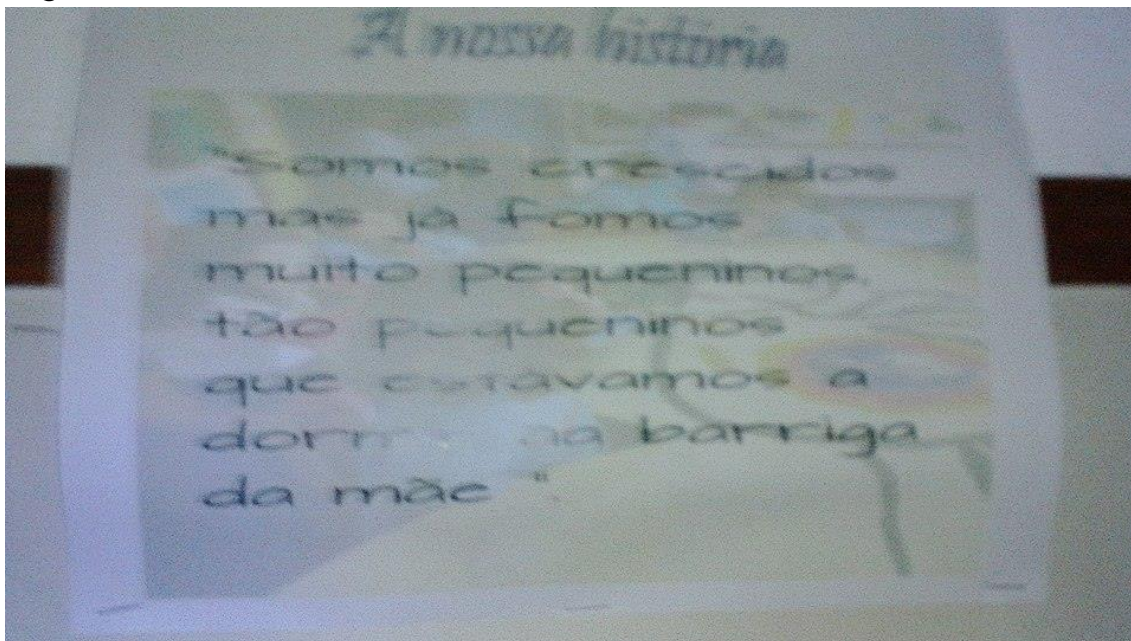 A nossa história
"Somos crescidos
mas já fomos
muito pequeninos,
tão pequeninos
que estávamos a
dormir na barriga
da mãe ".